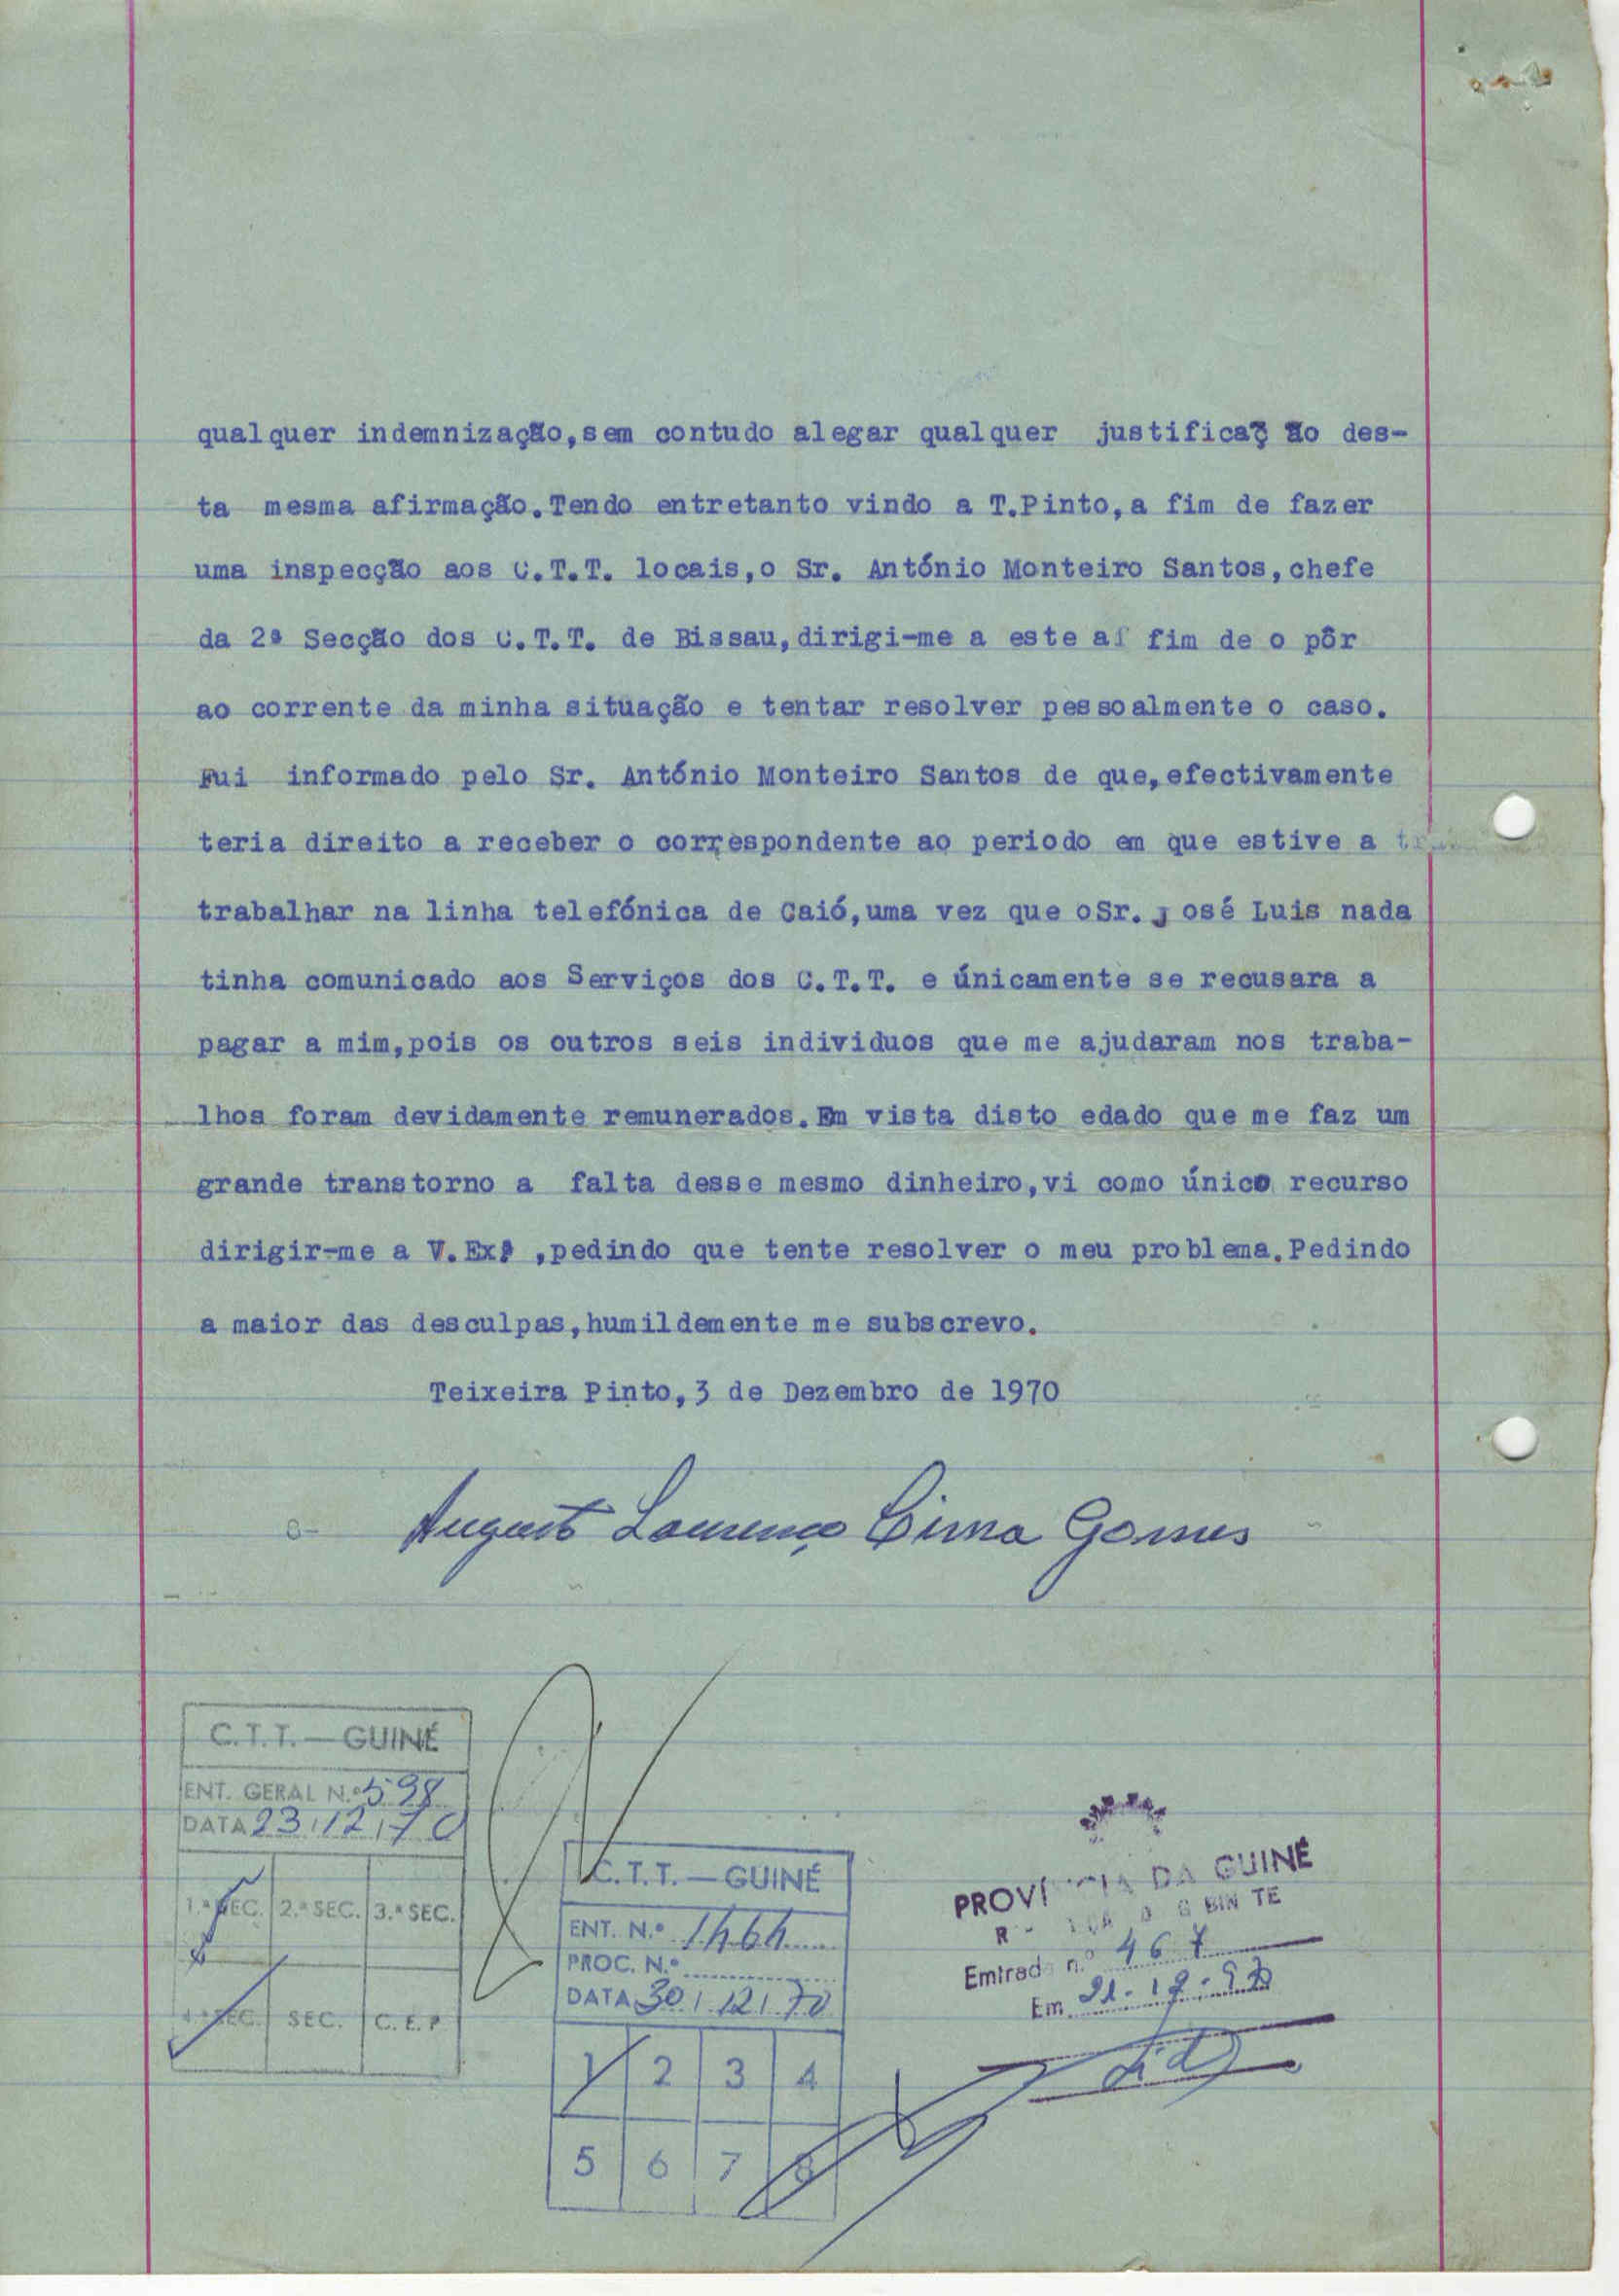 qualquer indemnização,sem contudo alegar qualquer justificaç ão des-
ta mesma afirmação.Tendo entretanto vindo a T.Pinto,a fim de fazer
uma inspecção aos C.T.T. locais,o Sr. António Monteiro Santos,chefe
da 2ª Secção dos C.T.T. de Bissau,dirigi-me a este a fim de o pôr
ao corrente da minha situação e tentar resolver pessoalmente o caso.
Fui informado pelo Sr. António Monteiro Santos de que,efectivamente
teria direito a receber o correspondente ao periodo em que estive a
trabalhar na linha telefónica de Caió,uma vez que oSr. José Luis nada
tinha comunicado aos Serviços dos C.T.T. e únicamente se recusara a
pagar a mim,pois os outros seis individuos que me ajudaram nos traba-
lhos foram devidamente remunerados.Em vista disto edado que me faz um
grande transtorno a falta desse mesmo dinheiro,vi como único recurso
dirigir-me a V.Exª ,pedindo que tente resolver o meu problema.Pedindo
a maior das desculpas,humildemente me subscrevo.
Teixeira Pinto,3 de Dezembro de 1970
Augusto Lourenço Cima Gomes
C.T.T. — GUINÉ
ENT. GERAL N.º 598
DATA 23/12/70
1.ª SEC. 2.ª SEC. 3.ª SEC.
4.ª SEC. SEC. C. E. P
C.T.T. — GUINÉ
ENT. N.º 1464
PROC. N.º
DATA 30/12/70
1 2 3 4
5 6 7 8
PROVÍNCIA DA GUINÉ
Entrada n.º 467
Em